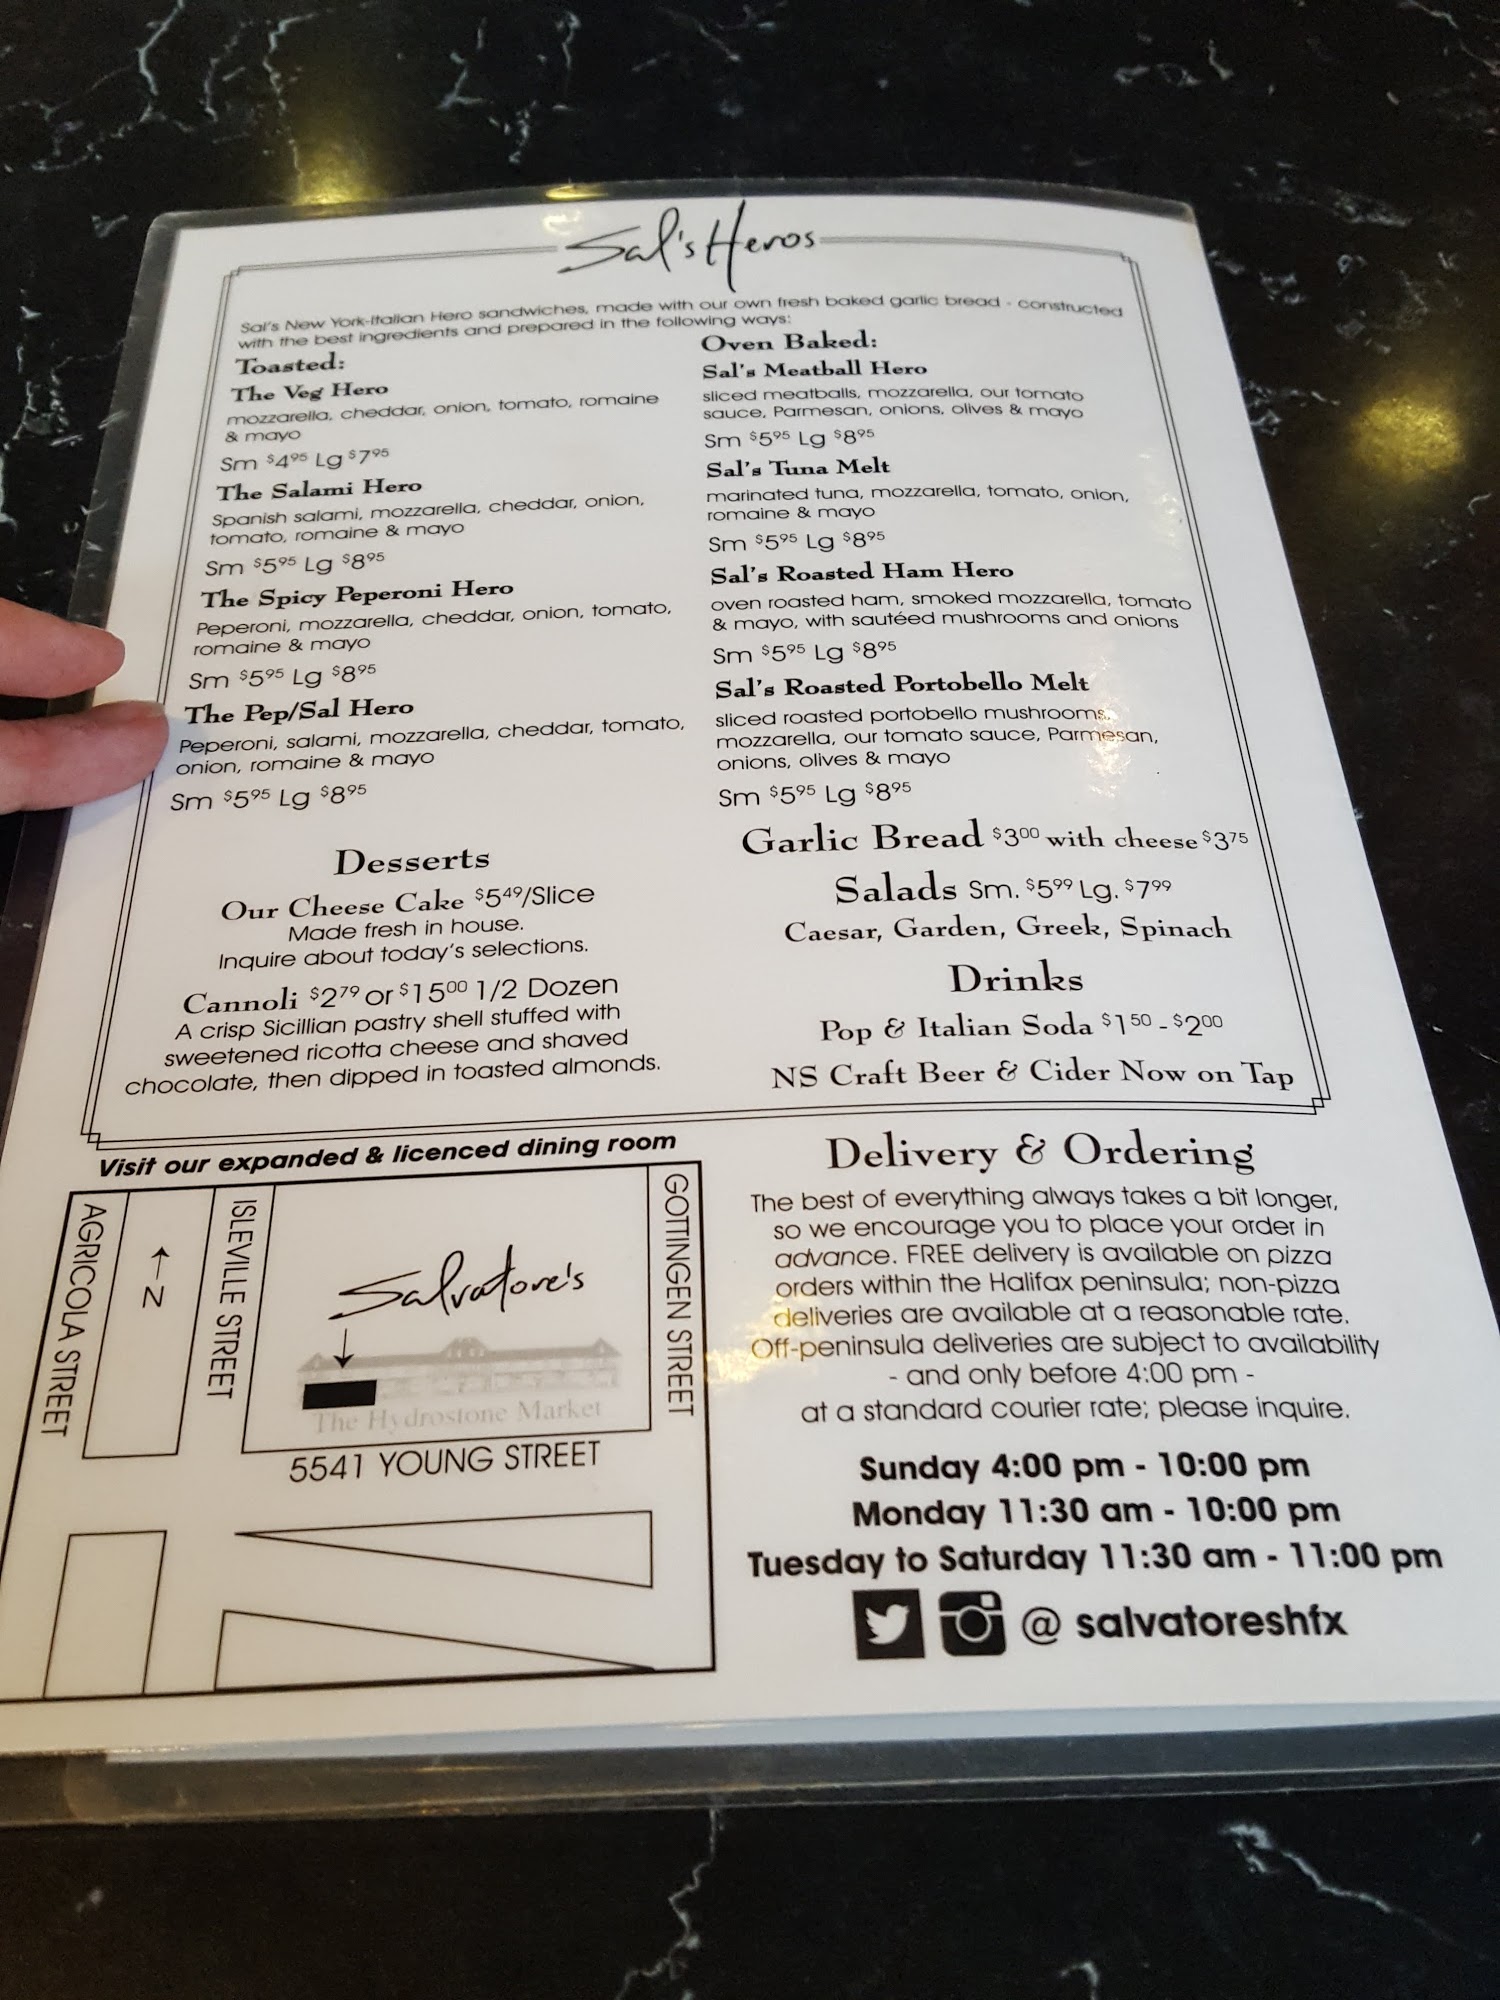 Sal's Heros
Sal's New York-Italian Hero sandwiches, made with our own fresh baked garlic bread - constructed
with the best ingredients and prepared in the following ways:
Toasted:
The Veg Hero
mozzarella, cheddar, onion, tomato, romaine
& mayo
Sm $4.95 Lg $7.95
The Salami Hero
Spanish salami, mozzarella, cheddar, onion,
tomato, romaine & mayo
Sm $5.95 Lg $8.95
The Spicy Peperoni Hero
Peperoni, mozzarella, cheddar, onion, tomato,
romaine & mayo
Sm $5.95 Lg $8.95
The Pep/Sal Hero
Peperoni, salami, mozzarella, cheddar, tomato,
onion, romaine & mayo
Sm $5.95 Lg $8.95
Desserts
Our Cheese Cake $5.49/Slice
Made fresh in house.
Inquire about today's selections.
Cannoli $2.79 or $15.00 1/2 Dozen
A crisp Sicillian pastry shell stuffed with
sweetened ricotta cheese and shaved
chocolate, then dipped in toasted almonds.
Oven Baked:
Sal's Meatball Hero
sliced meatballs, mozzarella, our tomato
sauce, Parmesan, onions, olives & mayo
Sm $5.95 Lg $8.95
Sal's Tuna Melt
marinated tuna, mozzarella, tomato, onion,
romaine & mayo
Sm $5.95 Lg $8.95
Sal's Roasted Ham Hero
oven roasted ham, smoked mozzarella, tomato
& mayo, with sautéed mushrooms and onions
Sm $5.95 Lg $8.95
Sal's Roasted Portobello Melt
sliced roasted portobello mushrooms,
mozzarella, our tomato sauce, Parmesan,
onions, olives & mayo
Sm $5.95 Lg $8.95
Garlic Bread $3.00 with cheese $3.75
Salads Sm. $5.99 Lg. $7.99
Caesar, Garden, Greek, Spinach
Drinks
Pop & Italian Soda $1.50 - $2.00
NS Craft Beer & Cider Now on Tap
Visit our expanded & licenced dining room
AGRICOLA STREET
N
ISLEVILLE STREET
Salvatore's
The Hydrostone Market
GOTTINGEN STREET
5541 YOUNG STREET
Delivery & Ordering
The best of everything always takes a bit longer,
so we encourage you to place your order in
advance. FREE delivery is available on pizza
orders within the Halifax peninsula; non-pizza
deliveries are available at a reasonable rate.
Off-peninsula deliveries are subject to availability
- and only before 4:00 pm -
at a standard courier rate; please inquire.
Sunday 4:00 pm - 10:00 pm
Monday 11:30 am - 10:00 pm
Tuesday to Saturday 11:30 am - 11:00 pm
@ salvatoreshfx